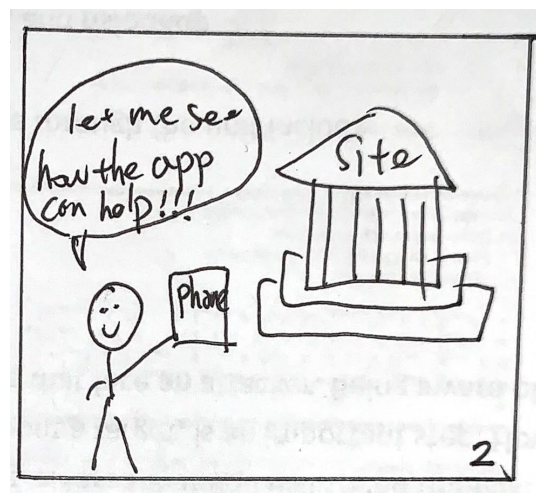 let me see
how the app
can help!!!
Site
phone
2